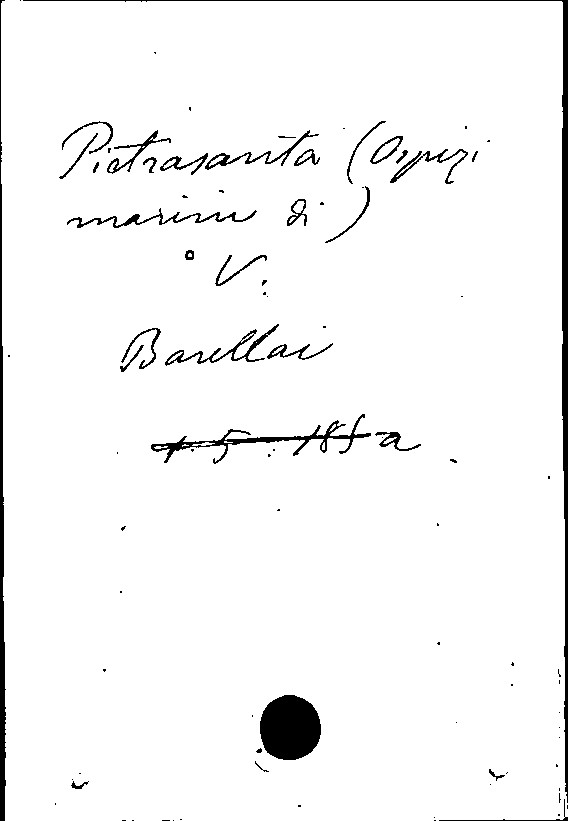 Pietrasanta (Ospizi
marini di)
V.
Barellai